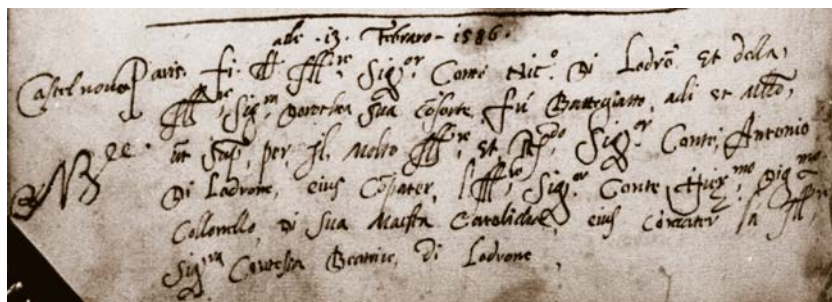 alli .13. Febraro - 1586.
Castel novo Paris. fi. Ill.re Sig.or Conte Nic.o Di Lodrõ Et della,
Ill.re Sig.ra Dorothea sua cõsorte, fu Battegiatto, adi et
ut sup.a per il Molto Ill.re et R.do Sig.or Conte, Antonio
Di Lodrone, eius Cõpater, l'Ill.re Sig.or Conte Hier.mo Dig.mo
Collonello, di sua Maesta Catolicha, eius Cõmater la Ill.re
Sig.ra Contessa Beatrice, di Lodrone,